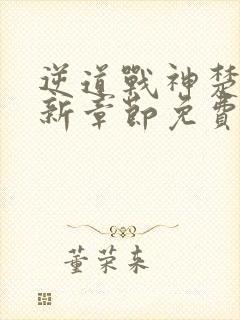 逆道戰神楚
新章節免費
董荣来